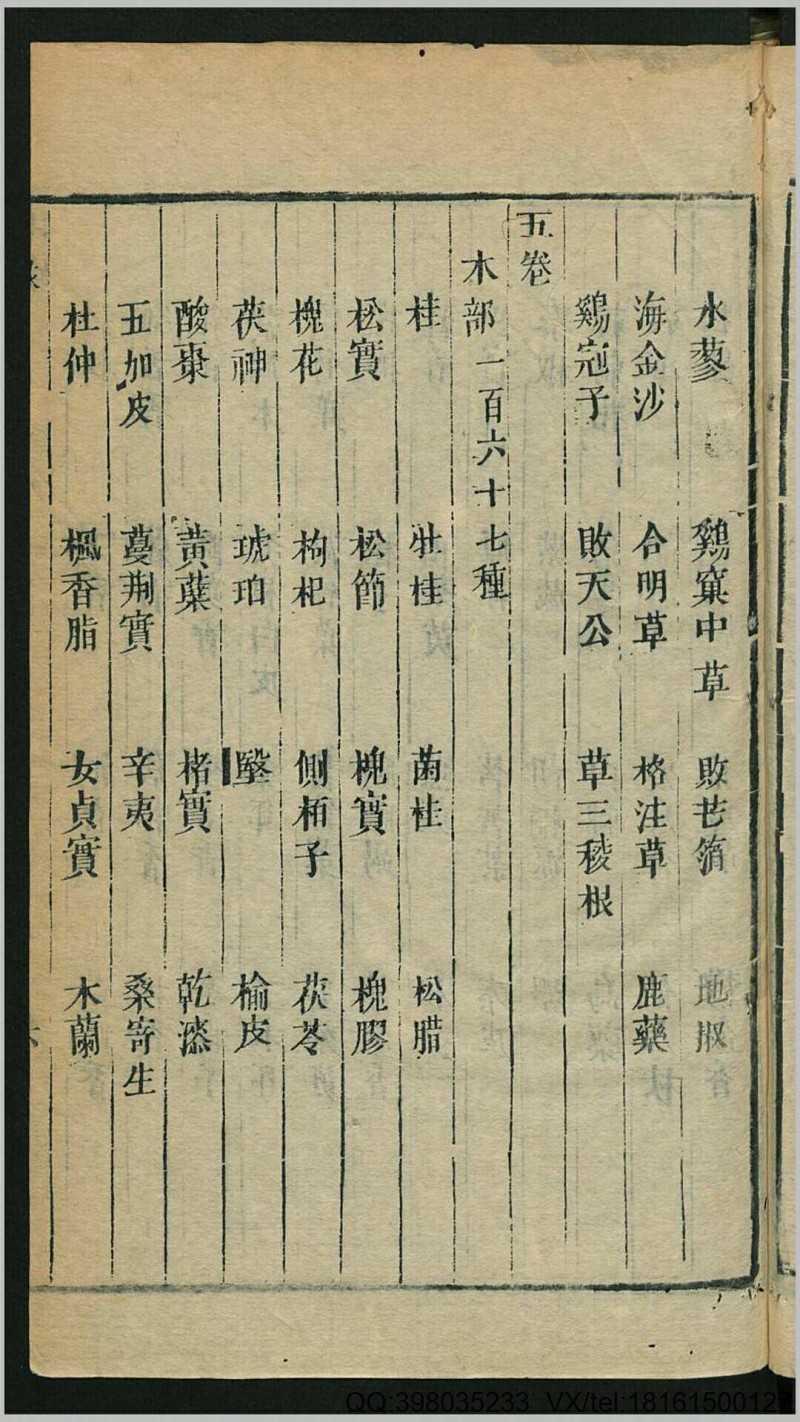 水蓼 鷄窠中草 敗芒箔 地椒
海金沙 合明草 格注草 鹿藥
鷄冠子 敗天公 草三稜根
五卷
木部一百六十七種
桂 牡桂 菌桂 松腊
松實 松節 槐實 槐膠
槐花 枸杞 側栢子 茯苓
茯神 琥珀 瑿 榆皮
酸棗 黃蘗 楮實 乾漆
五加皮 蔓荆實 辛夷 桑寄生
杜仲 楓香脂 女貞實 木蘭
QQ:398035233 VX/tel:1816150012